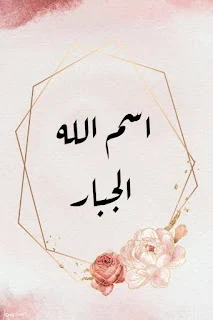 اسم الله
الجبار